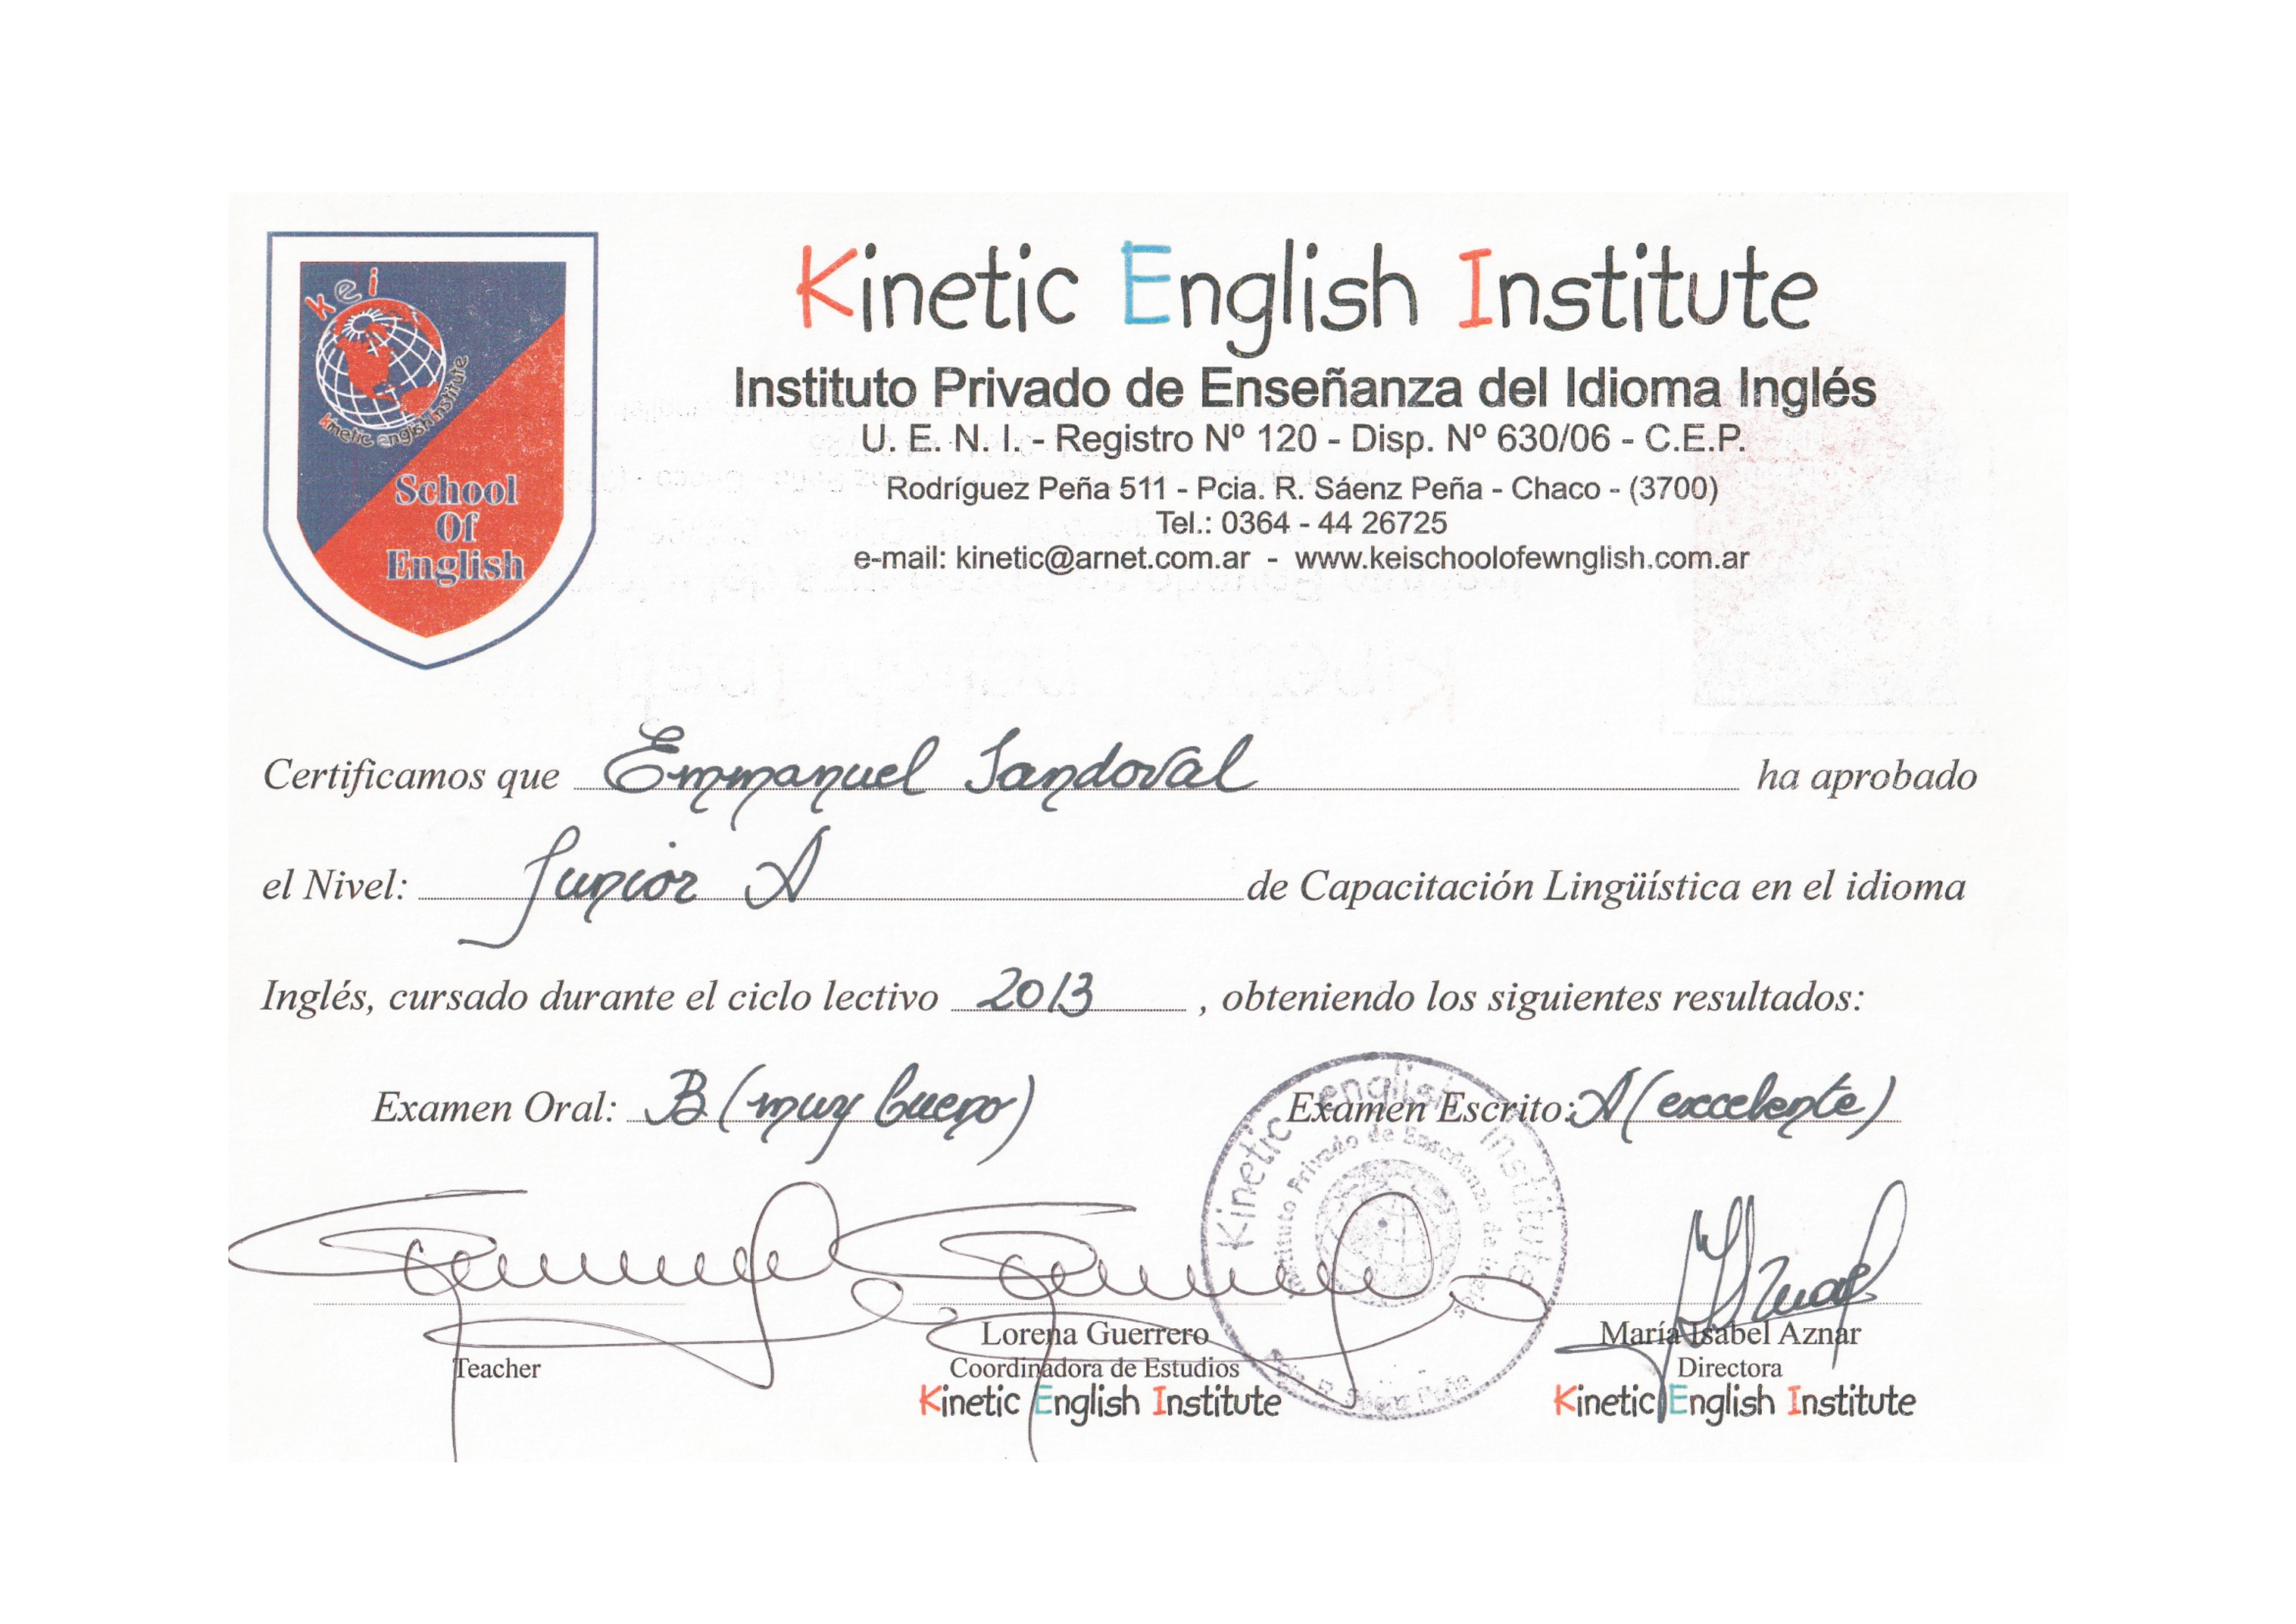 kei
kinetic english institute
School
Of
English
Kinetic English Institute
Instituto Privado de Enseñanza del Idioma Inglés
U. E. N. I. - Registro Nº 120 - Disp. Nº 630/06 - C.E.P.
Rodríguez Peña 511 - Pcia. R. Sáenz Peña - Chaco - (3700)
Tel.: 0364 - 44 26725
e-mail: kinetic@arnet.com.ar - www.keischoolofewnglish.com.ar
Certificamos que Emmanuel Sandoval ha aprobado
el Nivel: Junior A de Capacitación Lingüística en el idioma
Inglés, cursado durante el ciclo lectivo 2013, obteniendo los siguientes resultados:
Examen Oral: B (muy bueno) Examen Escrito: A (excelente)
Kinetic english institute
Instituto Privado de Enseñanza de
Teacher
Lorena Guerrero
Coordinadora de Estudios
Kinetic English Institute
María Isabel Aznar
Directora
Kinetic English Institute